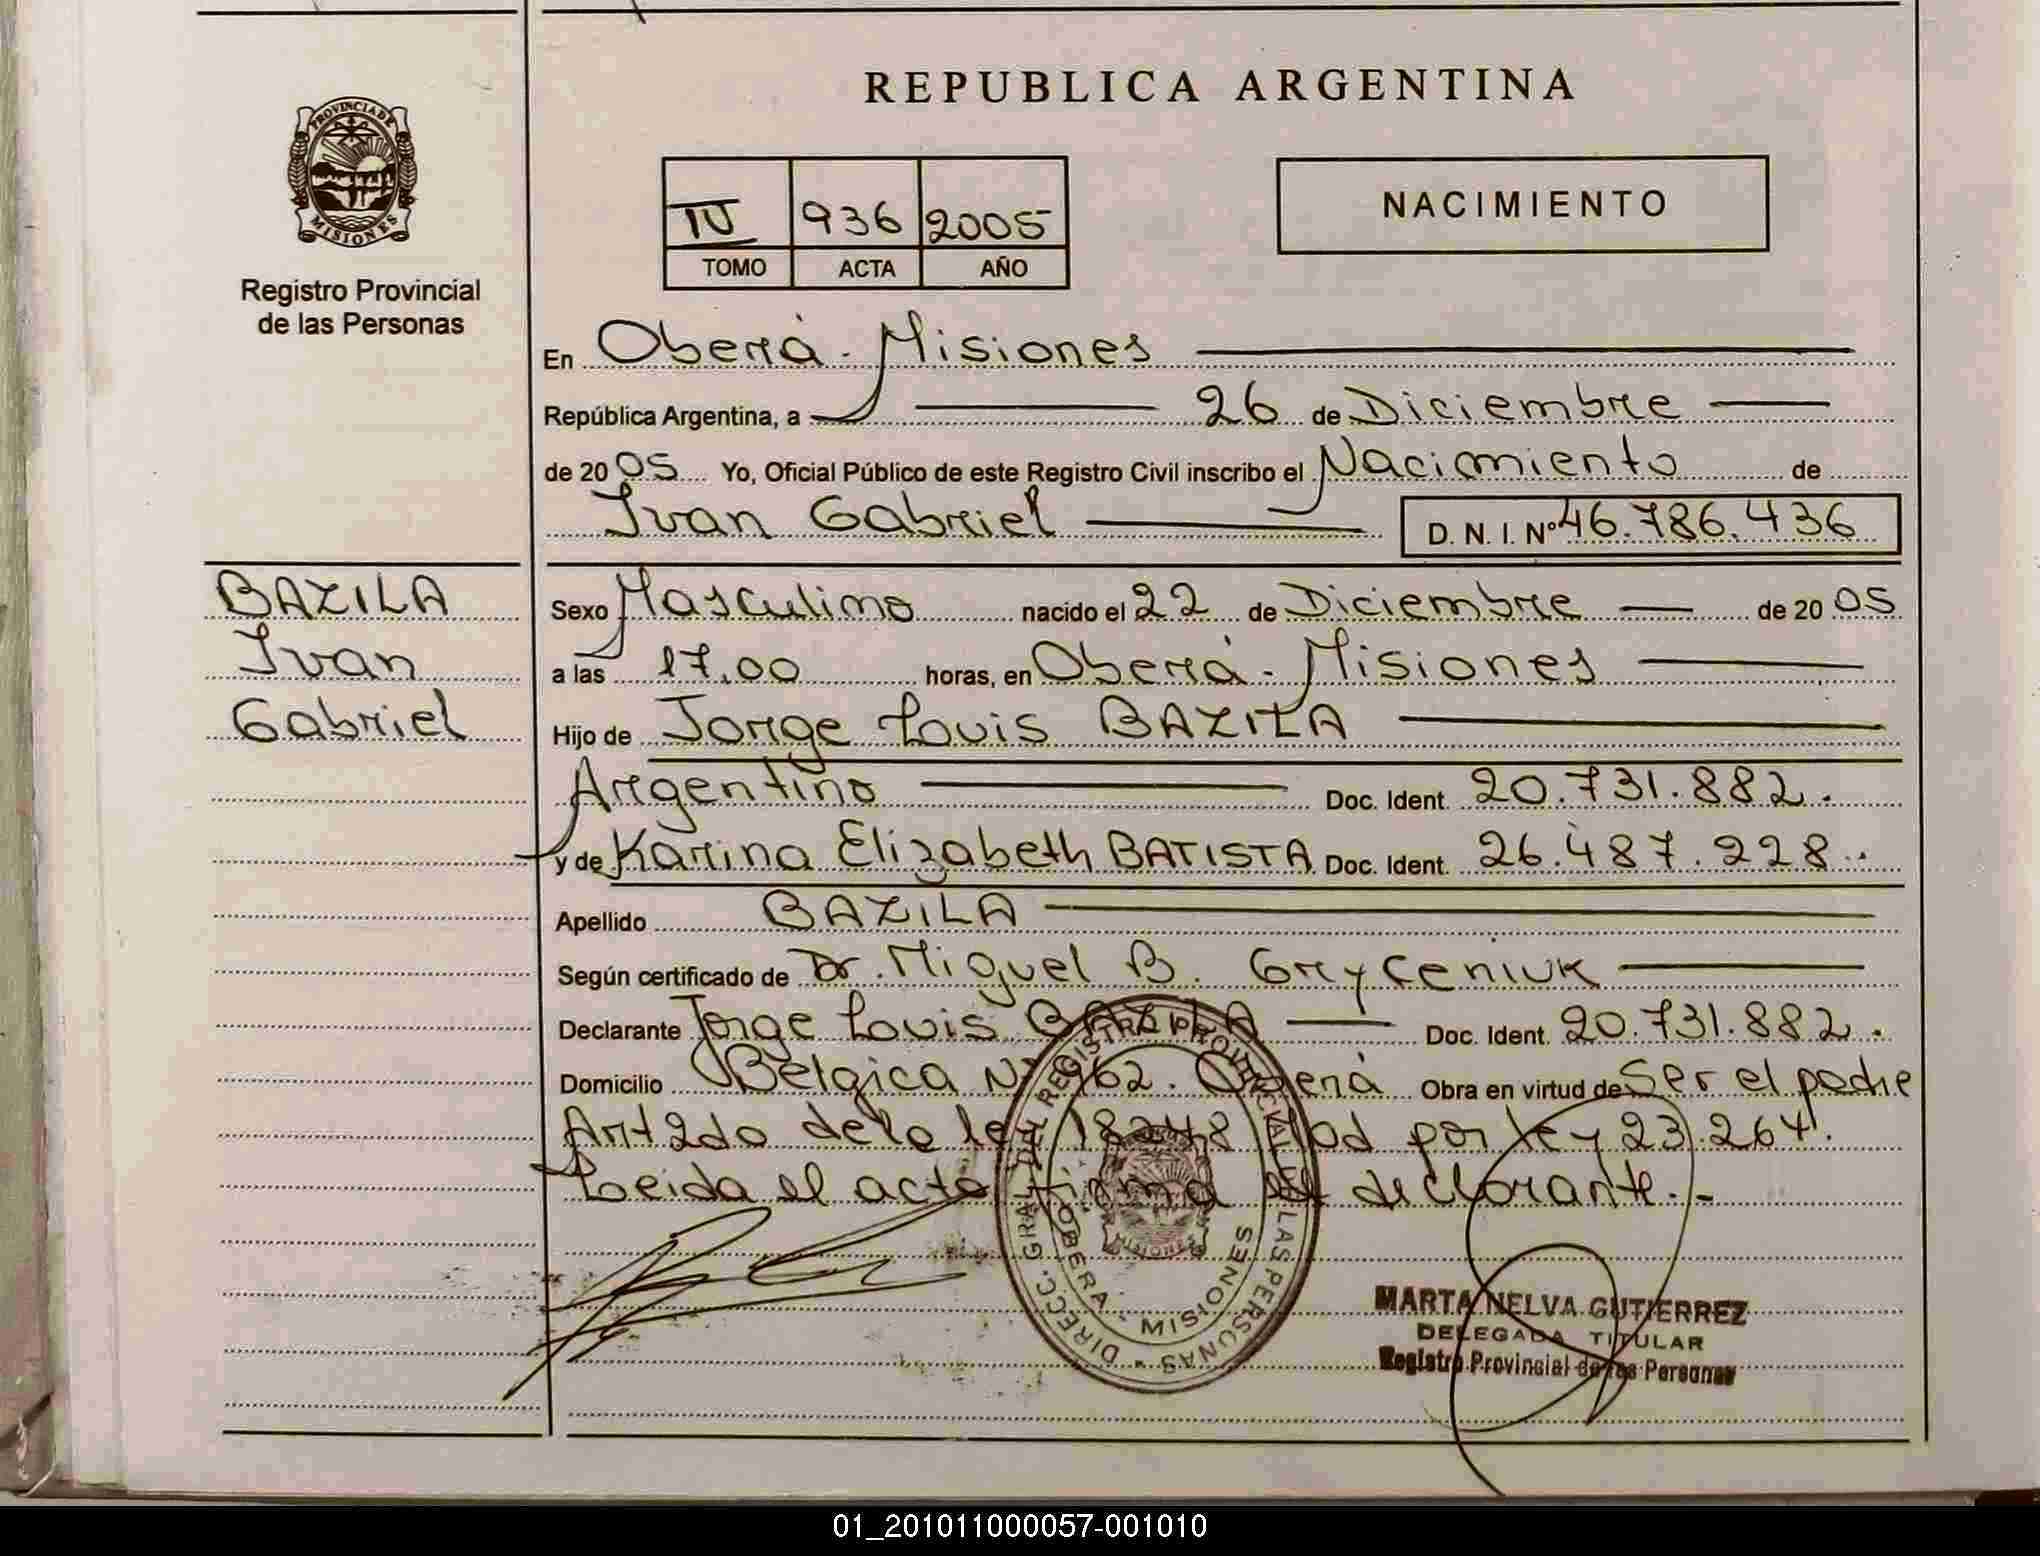 REPUBLICA ARGENTINA
PROVINCIA DE
MISIONES
Registro Provincial
de las Personas
IV 936 2005
TOMO ACTA AÑO
NACIMIENTO
En Oberá - Misiones
República Argentina, a 26 de Diciembre
de 2005 Yo, Oficial Público de este Registro Civil inscribo el Nacimiento de
Ivan Gabriel D. N. I. Nº 46.786.436
BAZILA
Ivan
Gabriel
Sexo Masculino nacido el 22 de Diciembre de 2005
a las 17,00 horas, en Oberá - Misiones
Hijo de Jorge Louis BAZILA
Argentino Doc. Ident. 20.731.882.
y de Karina Elizabeth BATISTA Doc. Ident. 26.487.228.
Apellido BAZILA
Según certificado de Dr. Miguel B. Gryceniuk
Declarante Jorge Louis BAZILA Doc. Ident. 20.731.882.
Domicilio Belgica Nº 962. Oberá Obra en virtud de Ser el padre
Art 2do de la ley 18248 Mod por ley 23.264.
Leida el acta firma el declarante.-
DIRECC. GRAL. DEL REGISTRO PROVINCIAL DE LAS PERSONAS
OBERA - MISIONES
MISIONES
MARTA NELVA GUTIERREZ
DELEGADA TITULAR
Registro Provincial de las Personas
01_201011000057-001010